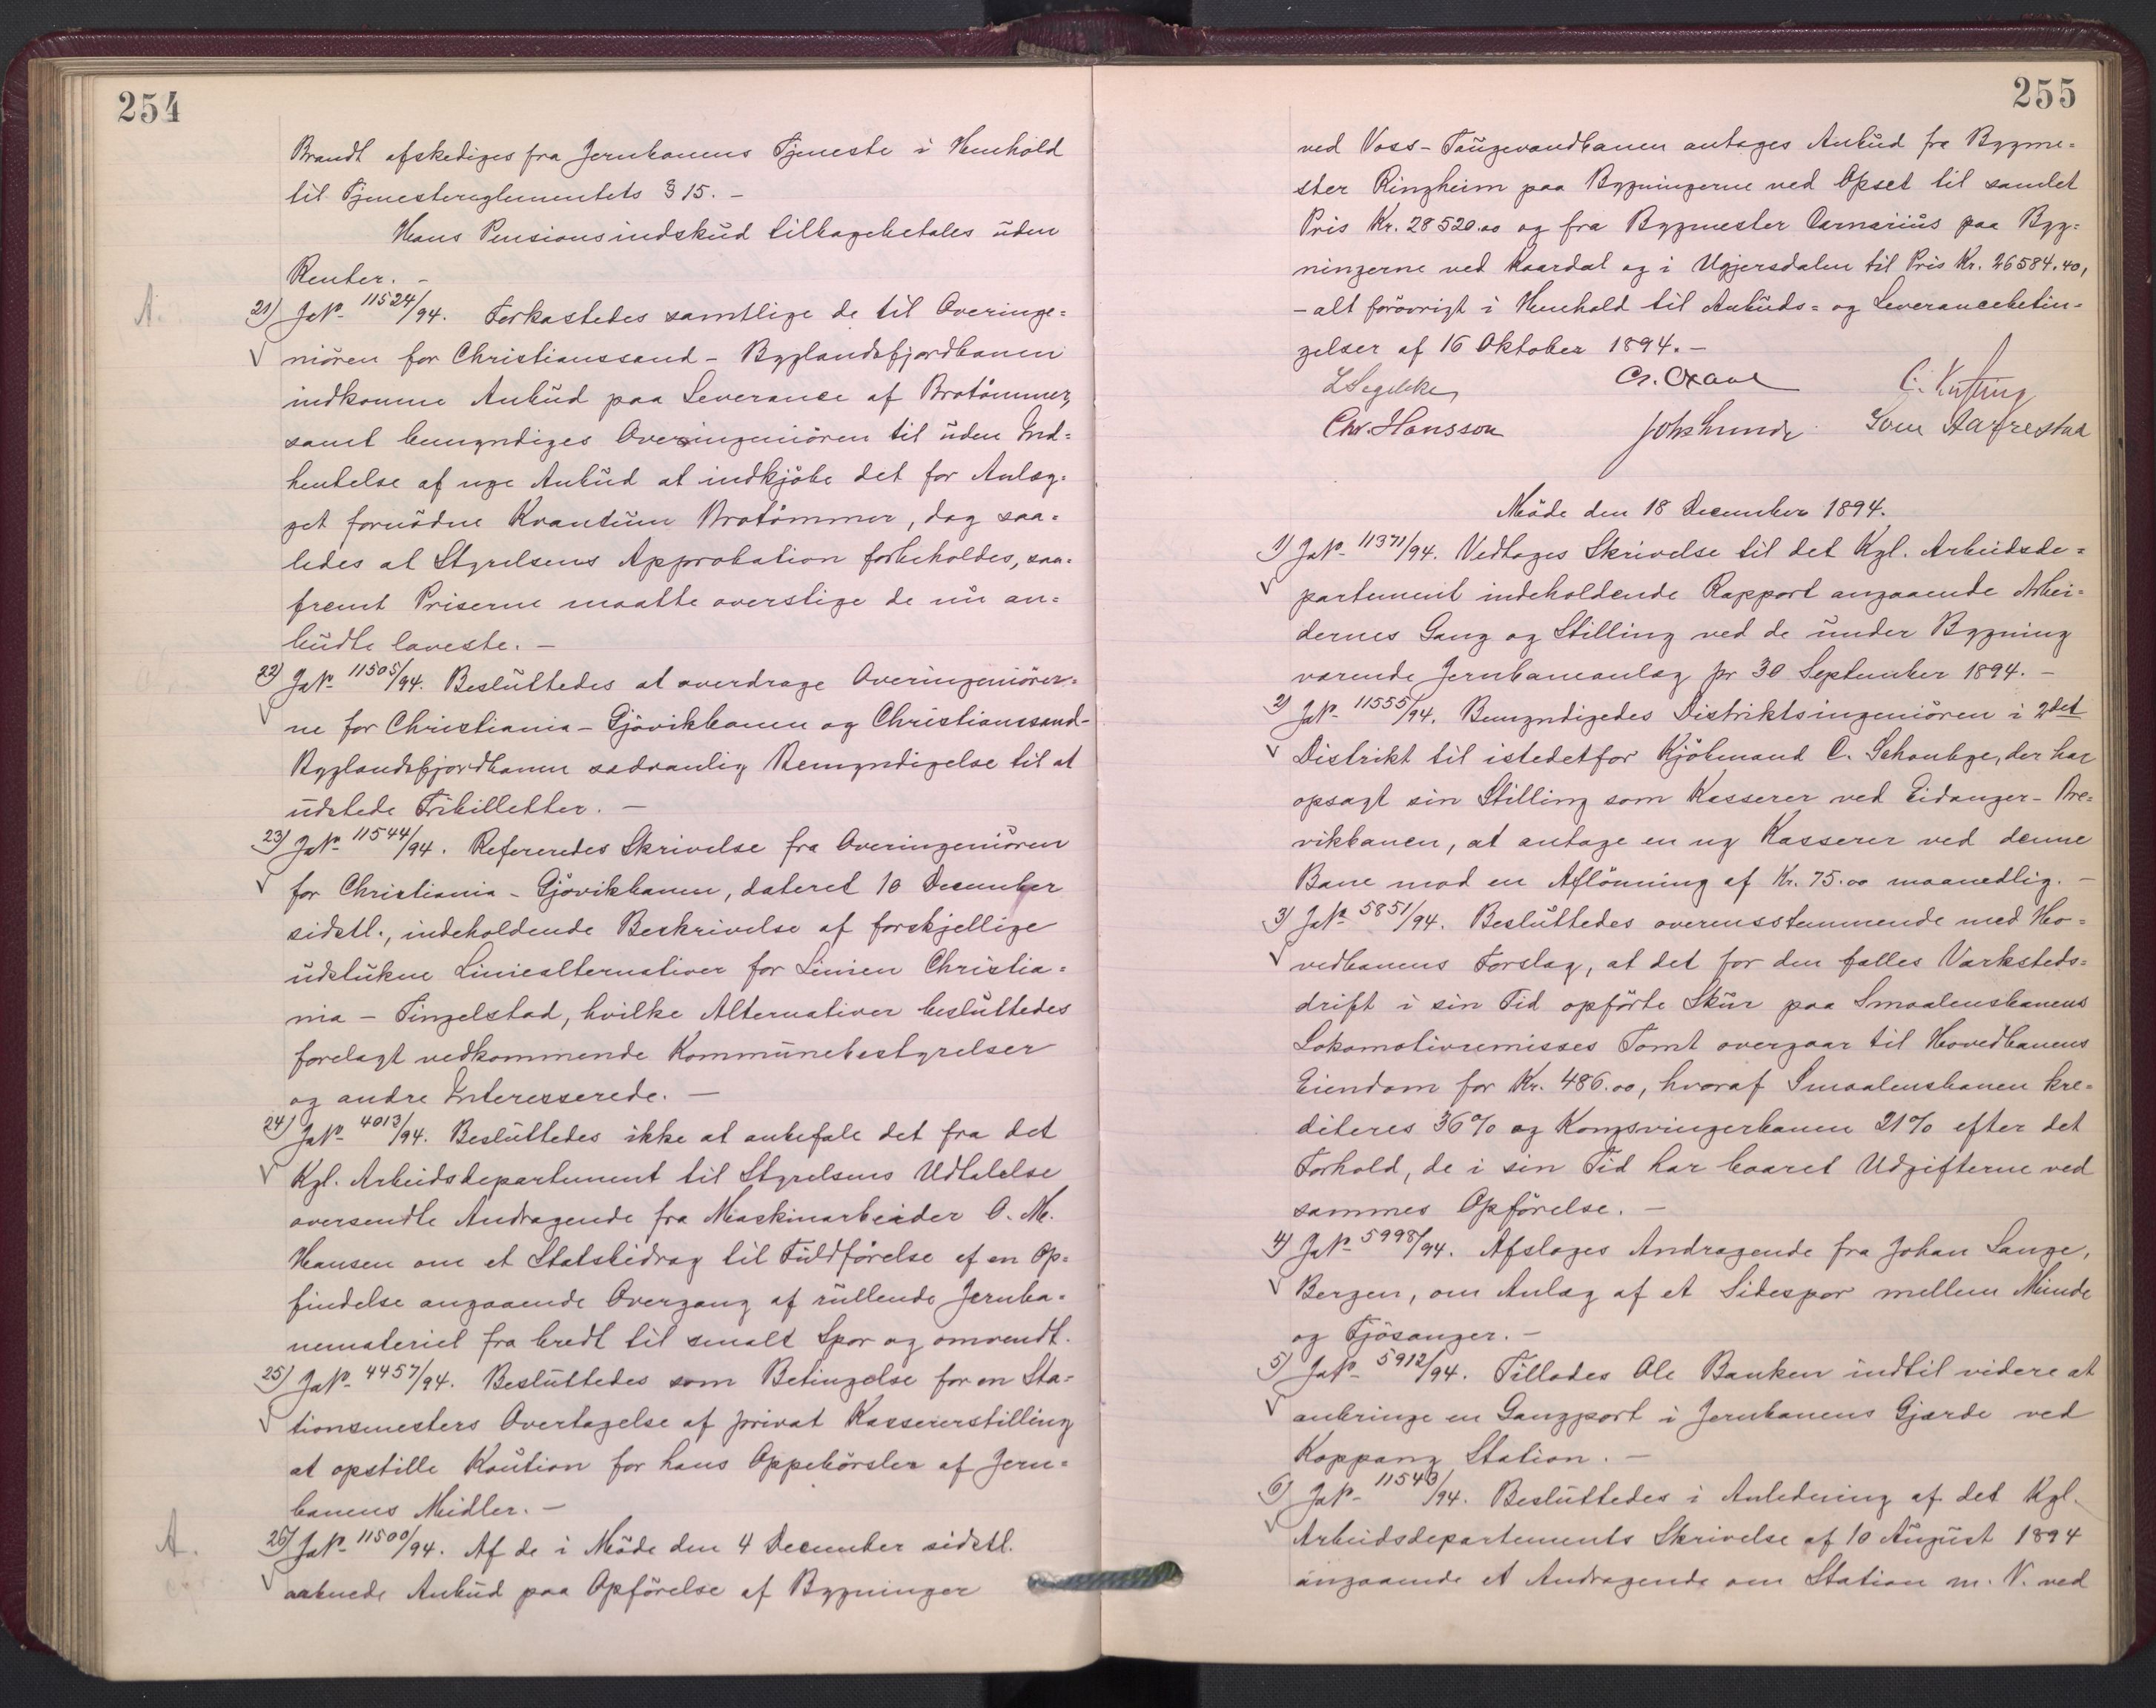 254
Brandt afskediges fra Jernbanens Tjeneste i Henhold
til Tjenestereglementets § 15. –
Hans Pensionsindskud tilbagebetales uden
Renter. –
A.
21) JNo 11524/94. Forkastedes samtlige de til Overinge=
niören for Christianssand – Byglandsfjordbanen
indkomne Anbud paa Leverance af Brotömmer,
samt bemyndiges Overingeniören til uden Ind=
hentelse af nye Anbud at indkjöbe det for Anlæg=
get fornödne Kvantum Brotömmer, dog saa=
ledes at Styrelsens Approbation forbeholdes, saa=
fremt Priserne maatte overstige de nu an=
budte laveste. –
22) JNo 11505/94. Besluttedes at overdrage Overingeniörer=
ne for Christiania – Gjövikbanen og Christianssand–
Byglandsfjordbanen sædvanlig Bemyndigelse til at
udstede Fribilletter. –
23) JNo 11544/94. Refereredes Skrivelse fra Overingeniören
for Christiania – Gjövikbanen, dateret 10 December
sidstl., indeholdende Beskrivelse af forskjellige
udstukne Liniealternativer for Linien Christia=
nia – Tingelstad, hvilke Alternativer besluttedes
forelagt vedkommende Kommunebestyrelser
og andre Interesserede. –
24) JNo 4013/94. Besluttedes ikke at anbefale det fra det
Kgl. Arbeidsdepartement til Styrelsens Udtalelse
oversendte Andragende fra Maskinarbeider O. M.
Hansen om et Statsbidrag til Fuldförelse af en Op=
findelse angaaende Overgang af rullende Jernba=
nemateriel fra bredt til smalt Spor og omvendt.
25) JNo 4457/94. Besluttedes som Betingelse for en Sta=
tionsmesters Overtagelse af privat Kassererstilling
at opstille Kaution for hans Oppebörsler af Jern=
banens Midler. –
A.
26) JNo 11500/94. Af de i Möde den 4 December sidstl.
aabnede Anbud paa Opförelse af Bygninger
255
ved Voss – Taugevandbanen antages Anbud fra Bygme=
ster Ringheim paa Bygningerne ved Opset til samlet
Pris Kr. 28520.00 og fra Bygmester Carnarius paa Byg=
ningerne ved Kaardal og i Ugjersdalen til Pris Kr. 26584.40,
– alt forövrigt i Henhold til Anbuds= og Leverancebetin=
gelser af 16 Oktober 1894. –
L Segelcke
Chr. Hansson
Sven Aarrestad
Möde den 18 December 1894.
1) JNo 11371/94. Vedtoges Skrivelse til det Kgl. Arbeidsde=
partement indeholdende Rapport angaaende Arbei=
dernes Gang og Stilling ved de under Bygning
værende Jernbaneanlæg pr 30 September 1894. –
2) JNo 11555/94. Bemyndigedes Distriktsingeniören i 2det
Distrikt til istedetfor Kjöbmand C. Schanbye, der har
opsagt sin Stilling som Kasserer ved Eidanger – Bre=
vikbanen, at antage en ny Kasserer ved denne
Bane mod en Aflönning af Kr. 75.00 maanedlig. –
3) JNo 5851/94. Besluttedes overensstemmende med Ho=
vedbanens Forslag, at det for den fælles Værksteds=
drift i sin Tid opförte Skur paa Smaalensbanens
Lokomotivremisses Tomt overgaar til Hovedbanens
Eiendom for Kr. 486.00, hvoraf Smaalensbanen kre=
diteres 36% og Kongsvingerbanen 21% efter det
Forhold, de i sin Tid har baaret Udgifterne ved
sammes Opförelse. –
4) JNo 5998/94. Afsloges Andragende fra Johan Lange,
Bergen, om Anlæg af et Sidespor mellem Minde
og Fjösanger. –
5) JNo 5912/94. Tillodes Ole Banken indtil videre at
anbringe en Gangport i Jernbanens Gjærde ved
Koppang Station. –
6) JNo 11543/94. Besluttedes i Anledning af det Kgl.
Arbeidsdepartements Skrivelse af 10 August 1894
angaaende et Andragende om Station m. V. ved